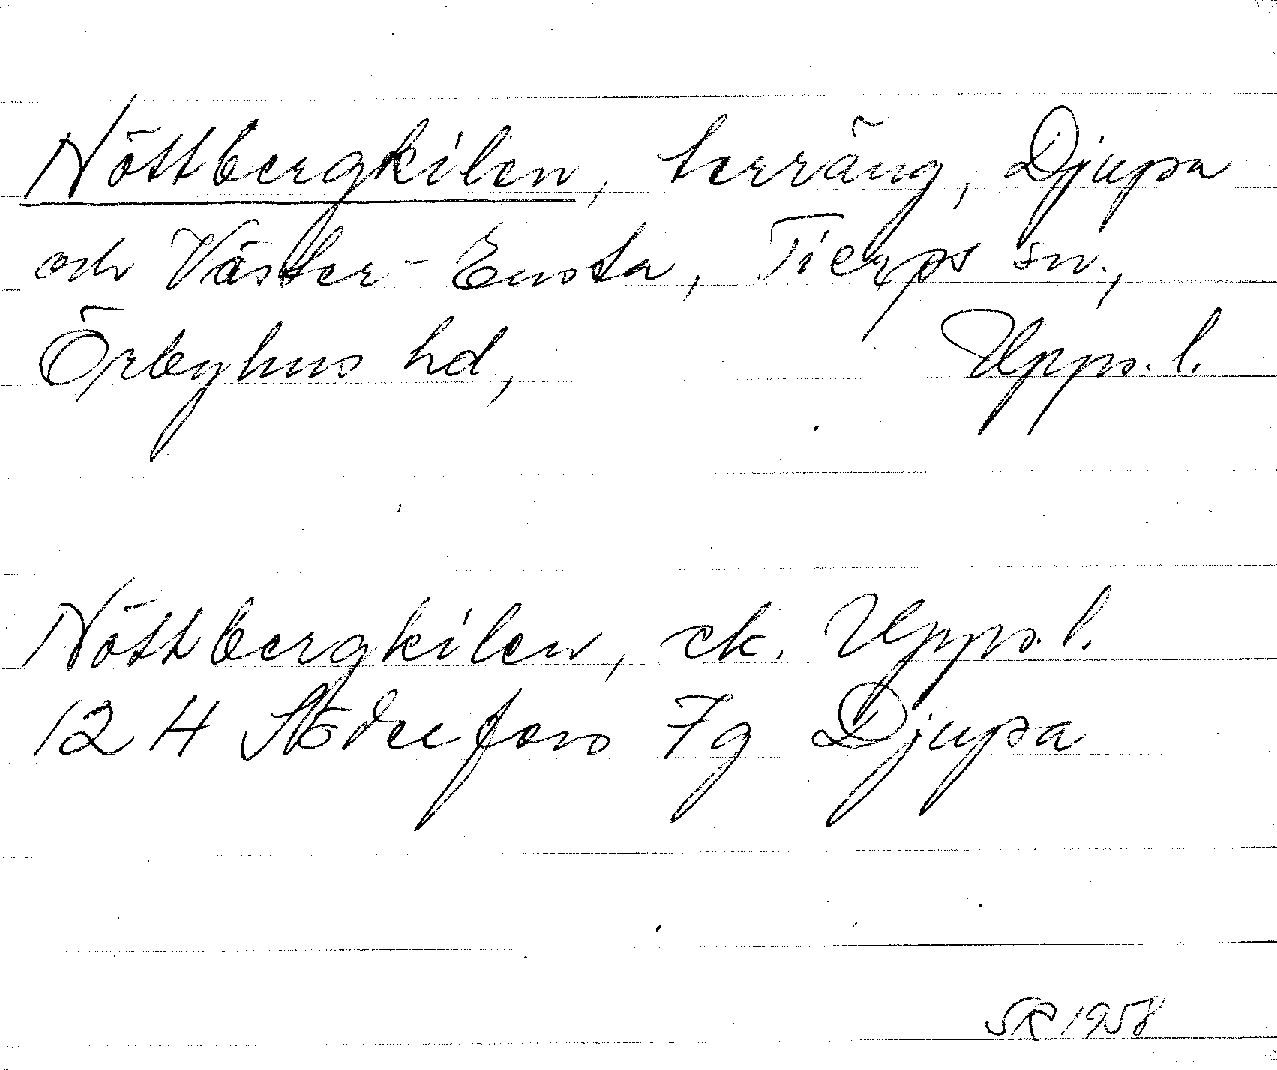 Nöttbergkilen, terräng, Djupa
och Väster-Ensta, Tierps sn.,
Örbyhus hd, Upps. l.
Nöttbergkilen, ek. Upps. l.
12 H Söderfors 7g Djupa
SR 1958